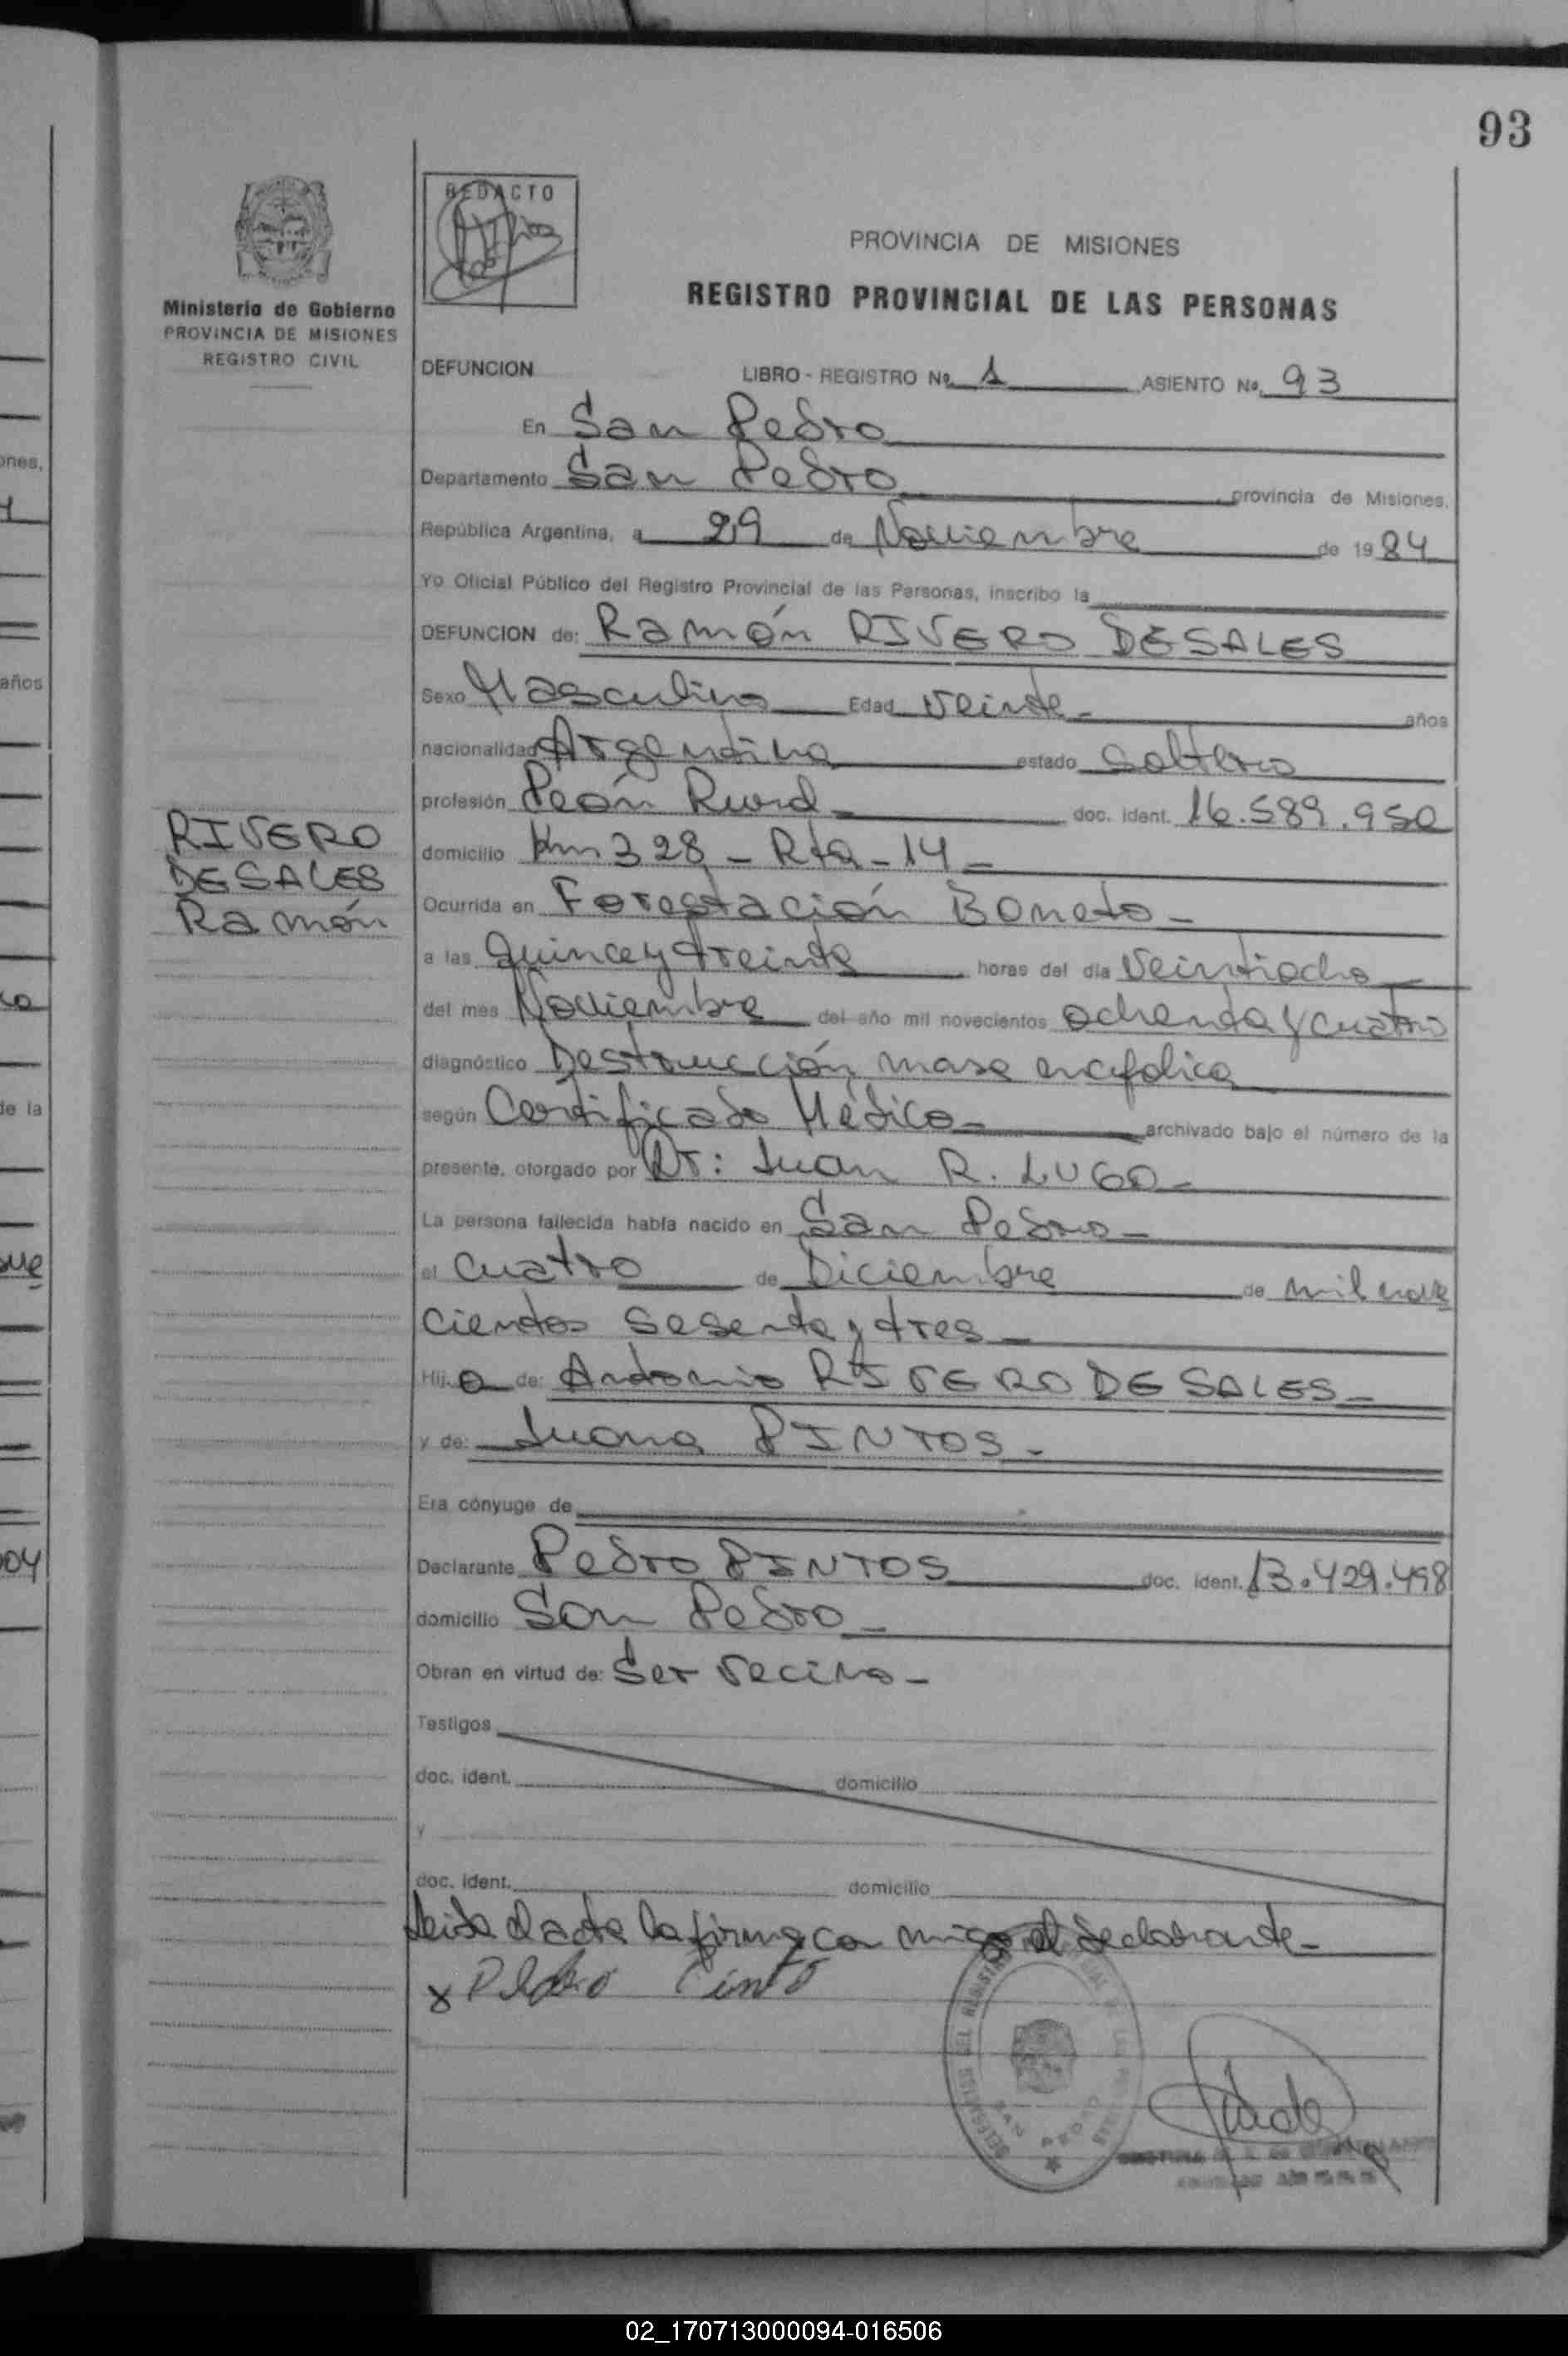 93
REDACTO
PROVINCIA DE MISIONES
REGISTRO PROVINCIAL DE LAS PERSONAS
Ministerio de Gobierno
PROVINCIA DE MISIONES
REGISTRO CIVIL
DEFUNCION LIBRO - REGISTRO No. 1 ASIENTO No. 93
En San Pedro
Departamento San Pedro provincia de Misiones,
República Argentina, a 29 de Noviembre de 1984
Yo Oficial Público del Registro Provincial de las Personas, inscribo la
DEFUNCION de: Ramón RIVERO DESALES
Sexo Masculino Edad veinte - años
nacionalidad Argentina estado Soltero
profesión Peón Rural - doc. ident. 16.589.950
domicilio Km 328 - Rta - 14 -
RIVERO
DESALES
Ramón
Ocurrida en Forestación Boneto -
a las Quince y treinta horas del día veintiocho
del mes Noviembre del año mil novecientos ochenta y cuatro
diagnóstico Destrucción masa encefolica
según Certificado Médico - archivado bajo el número de la
presente, otorgado por Dr: Juan R. LUGO -
La persona fallecida había nacido en San Pedro -
el Cuatro de Diciembre de mil nove
cientos sesenta y tres -
Hij o de: Antonio RIVERO DE SALES -
y de: Juana PINTOS -
Era cónyuge de
Declarante Pedro PINTOS doc. ident. 13.429.498
domicilio San Pedro -
Obran en virtud de: Ser vecino -
Testigos
doc. ident. domicilio
y
doc. ident. domicilio
Leida el acta la firma con migo el declarante -
x Pedro Pinto
SAN PEDRO
02_170713000094-016506